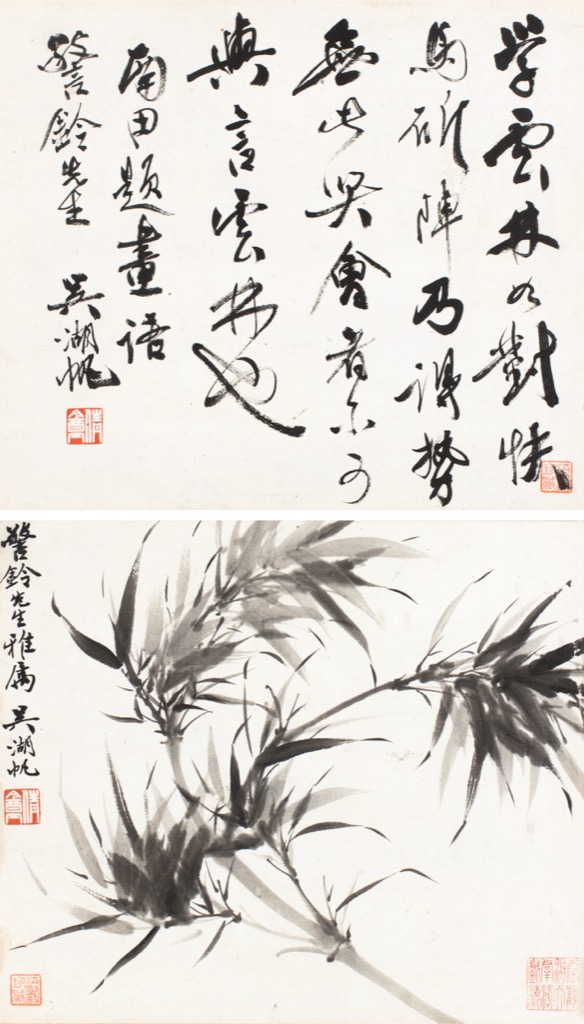 学雲林如對快
馬斫陣乃得勢
無此興會者不可
與言雲林也
南田題畫語
警鈴先生 吳湖帆
倩盦
警鈴先生雅屬 吳湖帆
倩盦